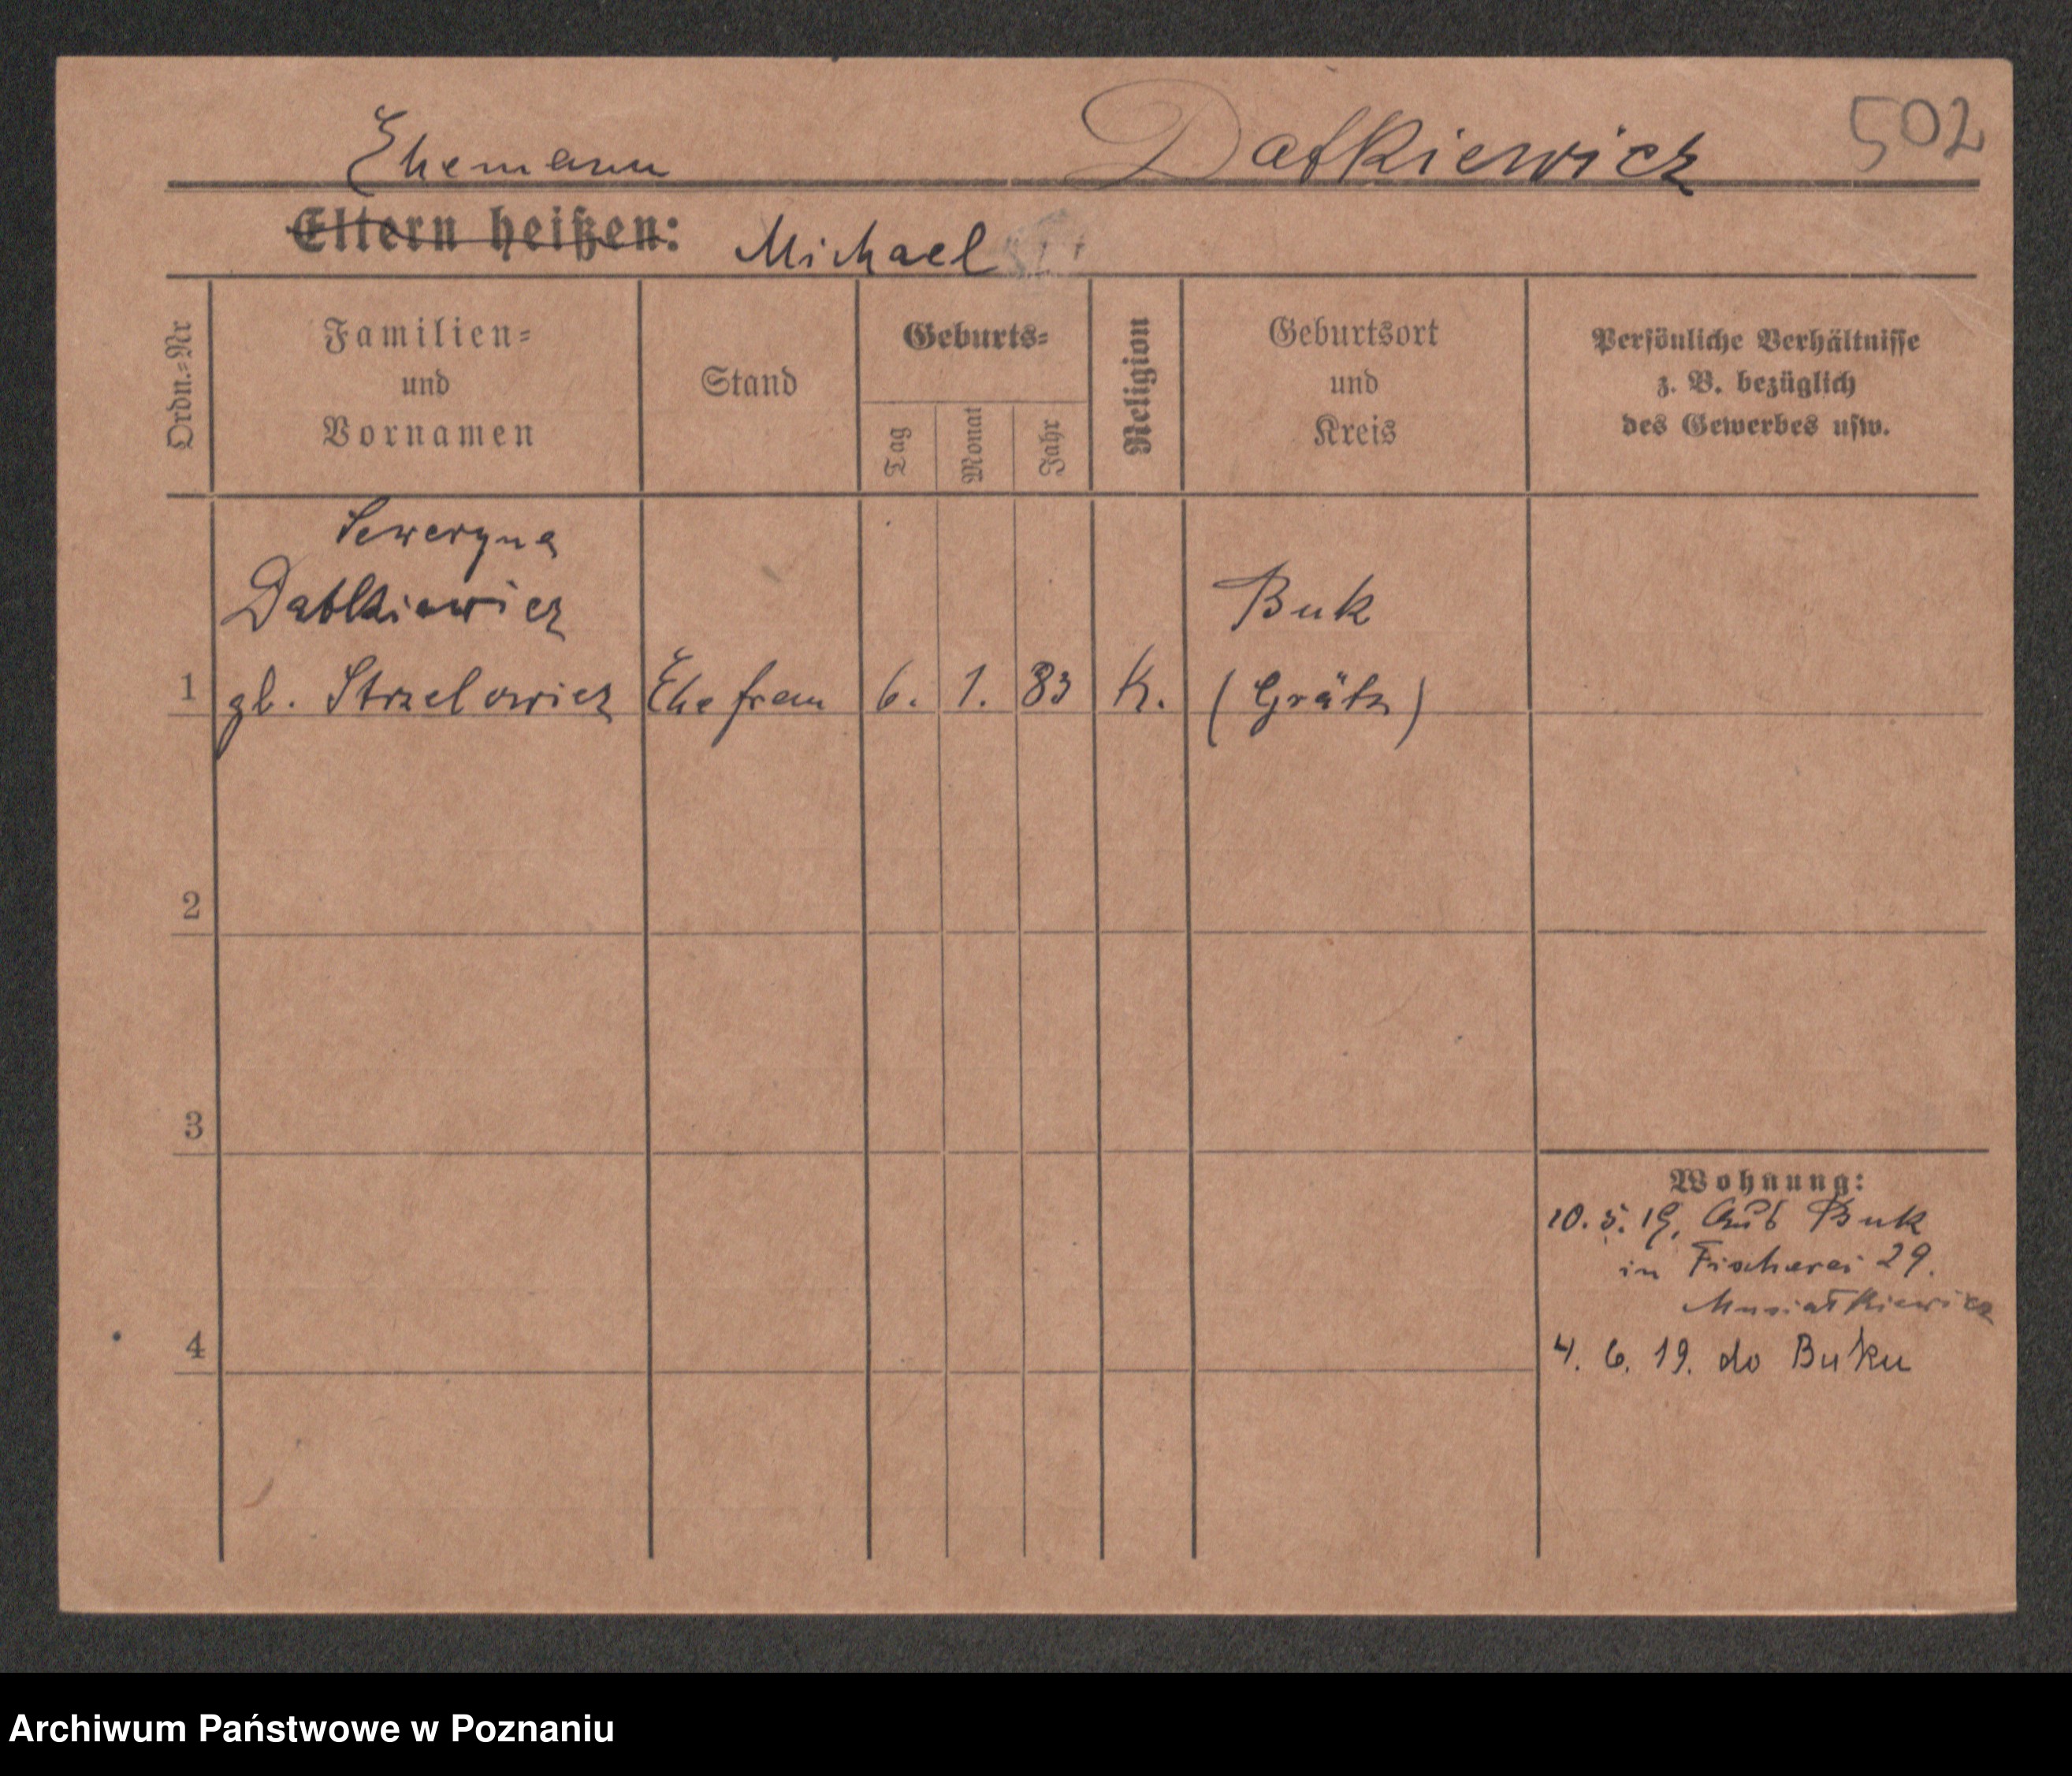 Ehemann Datkiewicz 502
Eltern heißen: Michael
Ordn.-Nr
Familien-
und
Vornamen
Stand
Geburts-
Tag
Monat
Jahr
Religion
Geburtsort
und
Kreis
Persönliche Verhältnisse
z. B. bezüglich
des Gewerbes usw.
Seweryna
Datkiewicz Buk
1 gb. Strzelowicz Ehefrau 6. 1. 83 K. (Grätz)
2
3
Wohnung:
10. 5. 19, Aus Buk
in Fischerei 29.
Musiatkiewicz
4
4. 6. 19. do Buku
Archiwum Państwowe w Poznaniu